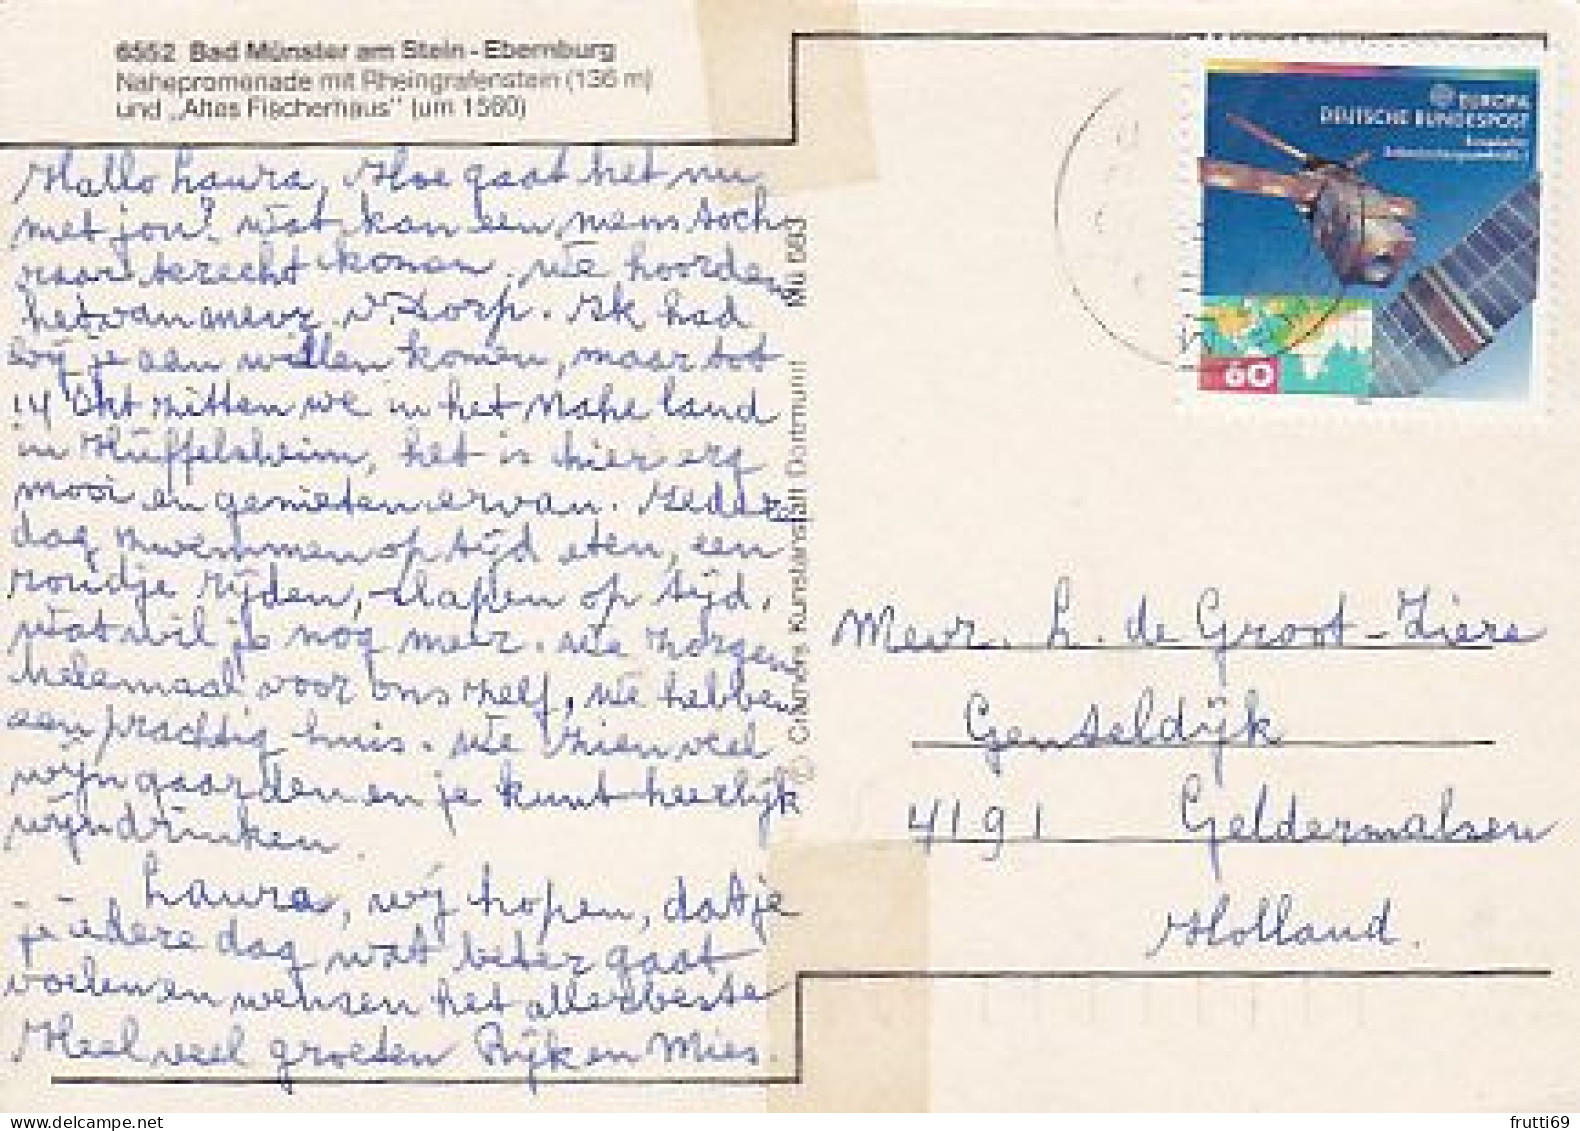 6552 Bad Münster am Stein-Ebernburg
Nahepromenade mit Rheingrafenstein (136 m)
und „Altes Fischerhaus" (um 1560)
Hallo Laura, Hoe gaat het nu
met jou? Wat kan een mens toch
naar terecht komen. We hoorden
het van mevr. v. Dorp. Ik had
bij je aan willen komen, maar tot
14 Okt zitten we in het Nahe land
in Hüffelsheim, het is hier erg
mooi en genieten ervan. Ieder
dag zwemmen op tijd eten, een
rondje rijden, slapen op tijd,
Wat wil je nog meer. We zorgen
helemaal voor ons zelf, We hebben
een prachtig huis. We zien veel
wijngaarden en je kunt heerlijk
wijn drinken.
Laura, wij hopen, dat je
je iedere dag wat beter gaat
voelen en wensen het allerbeste
Heel veel groeten Rijk en Mies.
© Cramers Kunstanstalt Dortmund Mü 683
EUROPA
DEUTSCHE BUNDESPOST
60
Mevr. L. de Groot-Ziere
Genteldijk
4191 Geldermalsen
Holland.
frutti69